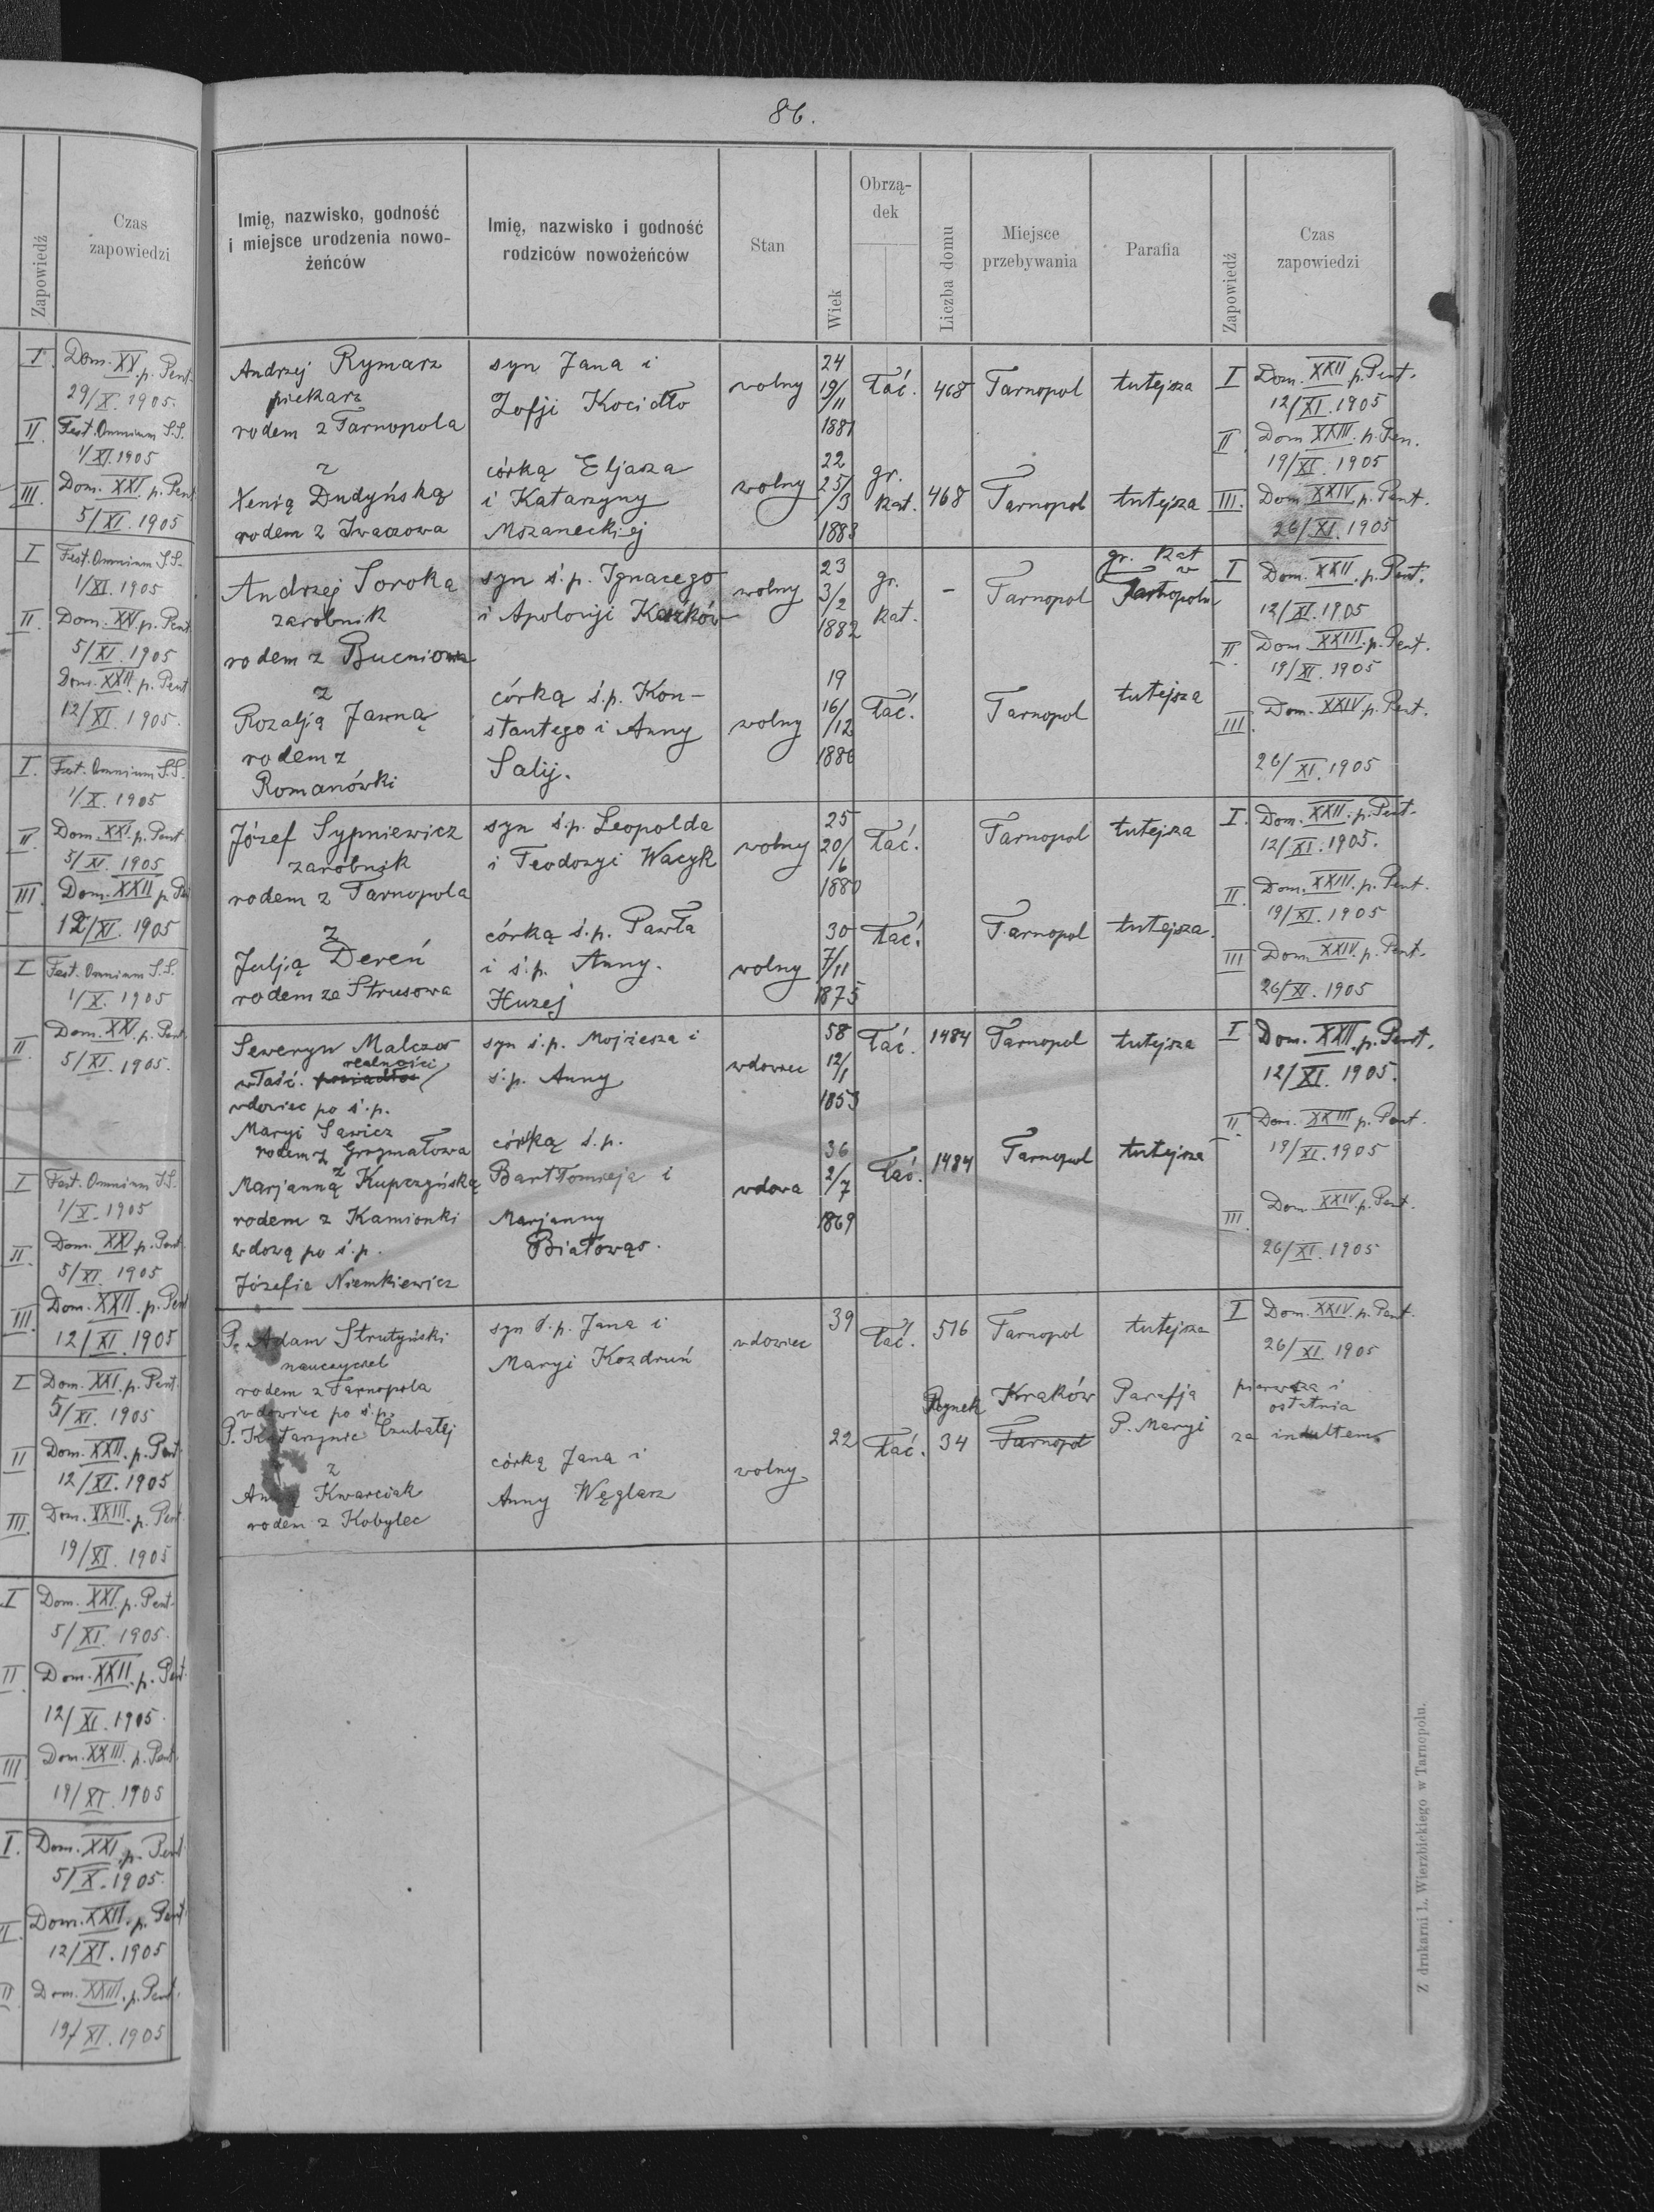 Zapowiedź
Czas
zapowiedzi
I. Dom. XX. p. Pent.
29/X. 1905.
II. Fest. Omnium S.S.
1/XI. 1905
III. Dom. XXI. p. Pent
5/XI. 1905
I Fest. Omnium S.S.
1/XI. 1905
II. Dom. XXI. p. Pent
5/XI. 1905
Dom. XXII. p. Pent
12/XI. 1905.
I. Fest. Omnium S.S.
1/X. 1905
II. Dom. XXI. p. Pent.
5/XI. 1905
III. Dom. XXII p. Pe
12/XI. 1905
I Fest. Omnium S.S.
1/X. 1905
II. Dom. XXI. p. Pent.
5/XI. 1905.
I Fest. Omnium S.S.
1/X. 1905
II. Dom. XXI. p. Pent
5/XI. 1905
III. Dom. XXII. p. Pent
12/XI. 1905
I Dom. XXI. p. Pent.
5/XI. 1905
II Dom. XXII. p. Pent
12/XI. 1905
III. Dom. XXIII. p. Pent.
19/XI. 1905
I Dom. XXI. p. Pent.
5/XI. 1905.
II Dom. XXII. p. Pent.
12/XI. 1905.
III Dom. XXIII. p. Pent.
19/XI. 1905
I. Dom. XXI. p. Pent
5/X. 1905.
II. Dom. XXII. p. Pent.
12/XI. 1905
II Dom. XXIII. p. Pent.
19/XI. 1905
86.
Imię, nazwisko, godność
i miejsce urodzenia nowo-
żeńców
Imię, nazwisko i godność
rodziców nowożeńców
Stan
Wiek
Obrzą-
dek
Liczba domu
Miejsce
przebywania
Parafia
Zapowiedź
Czas
zapowiedzi
Andrzej Rymarz
piekarz
rodem z Tarnopola
syn Jana i
Zofji Kocidło
wolny
24
19/11
1881
łać. 468 Tarnopol tutejsza
I Dom. XXII p. Pent.
12/XI. 1905
II. Dom XXIII. p. Pen.
19/XI. 1905
z
Xenią Dudyńską
rodem z Iwaczowa
córką Eljasza
i Katarzyny
Mozaneckiej
wolny
22
25/3
1883
gr.
kat. 468 Tarnopol tutejsza
III. Dom XXIV. p. Pent.
26/XI. 1905
Andrzej Soroka
zarobnik
rodem z Bucniowa
syn ś.p. Ignacego
i Apolonji
wolny
23
3/2
1882
gr.
kat.
-
Tarnopol
gr. kat
w
Tarnopolu
I Dom. XXII. p. Pent.
12/XI. 1905
II Dom. XXIII. p. Pent.
19/XI. 1905
z
Rozalją Jawną
rodem z
Romanówki
córką ś.p. Kon-
stantego i Anny
Salij.
wolny
19
16/12
1886
łać. Tarnopol tutejsza
III Dom. XXIV. p. Pent.
26/XI. 1905
Józef Sypniewicz
zarobnik
rodem z Tarnopola
syn ś.p. Leopolda
i Teodozyi Wacyk
wolny
25
20/6
1880
łać. Tarnopol tutejsza
I. Dom. XXII. p. Pent.
12/XI. 1905.
II. Dom. XXIII. p. Pent.
19/XI. 1905
z
Julją Dereń
rodem ze Strusowa
córką ś.p. Pawła
i ś.p. Anny.
Huzej
wolny
30
7/11
1875
łać. Tarnopol tutejsza.
III Dom XXIV. p. Pent.
26/XI. 1905
Seweryn Malczos
realności
właśc.
wdowiec po ś.p.
Maryi Sawicz
rodem z Grzymałowa
syn ś.p. Mojżesza i
ś.p. Anny
wdowiec
58
12/1
1853
łać. 1484 Tarnopol tutejsza
I Dom. XXII. p. Pent.
12/XI. 1905.
II Dom. XXIII p. Pent.
19/XI. 1905
z
Marjanną Kupczyńską
rodem z Kamionki
wdową po ś.p.
Józefie Niemkiewicz
córką ś.p.
Bartłomieja i
Marjanny
Białowąs.
wdowa
36
2/7
1869
łać. 1484 Tarnopol tutejsza
III. Dom XXIV. p. Pent.
26/XI. 1905
P. Adam Strutyński
nauczyciel
rodem z Tarnopola
wdowiec po ś.p.
P. Katarzynie Czubatej
syn ś.p. Jana i
Maryi Kozdruń
wdowiec
39
łać. 516 Tarnopol tutejsza
I Dom. XXIV. p. Pent.
26/XI. 1905
pierwsza i
ostatnia
za indultem
z
Anną Kwarciak
rodem z Kobylec
córką Jana i
Anny Węglarz
wolny
22
łać.
Rynek
34
Kraków
Tarnopol
Parafja
P. Maryi
Z drukarni L. Wierzbickiego w Tarnopolu.